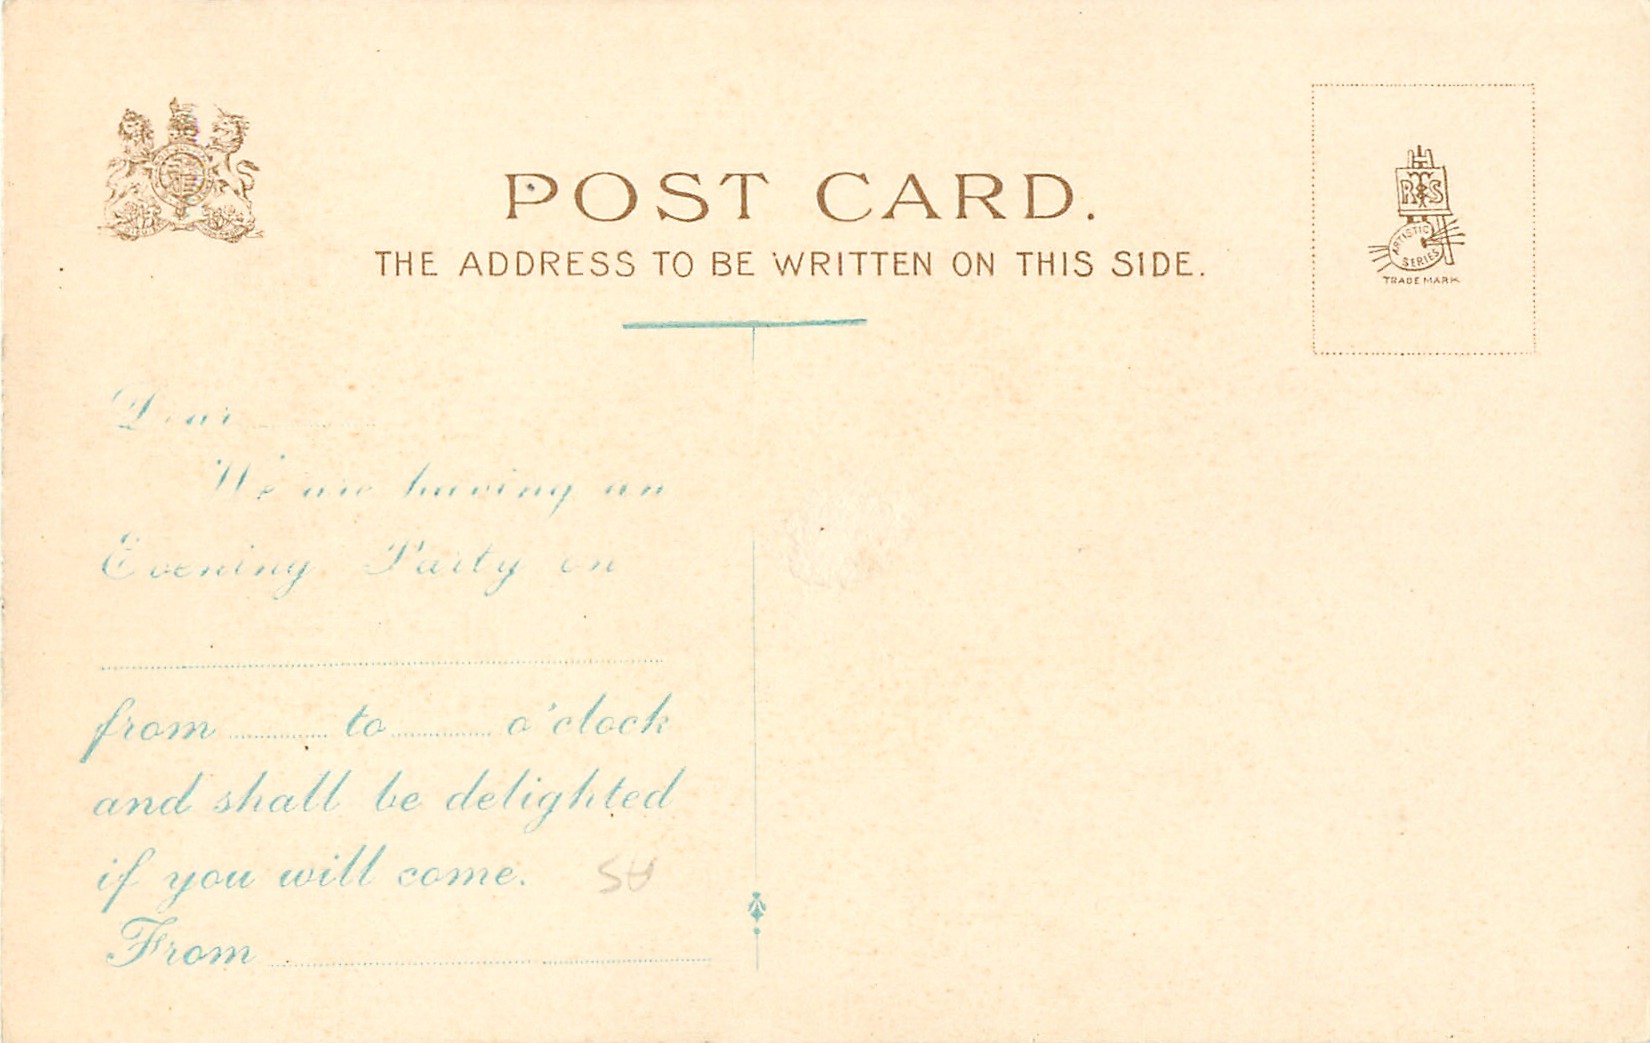 POST CARD.
THE ADDRESS TO BE WRITTEN ON THIS SIDE.
RTS
ARTISTIC
SERIES
TRADE MARK
Dear
We are having an
Evening Party on
from to o'clock
and shall be delighted
if you will come.
From